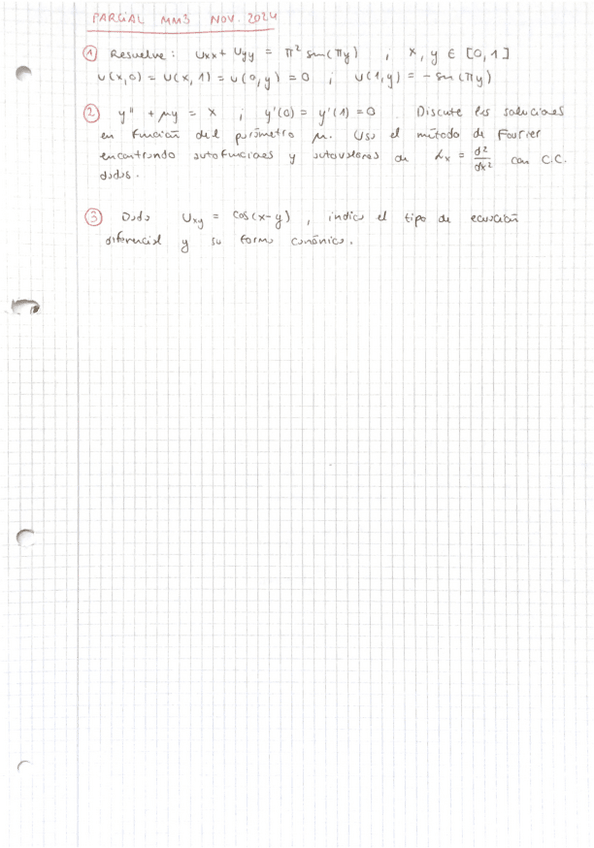 PARCIAL MM3 NOV. 2024
① Resuelve: Uxx + Uyy = π² sen(πy) , x, y ∈ [0,1]
U(x,0) = U(x,1) = U(0,y) = 0 ; U(1,y) = - sen(πy)
② y'' + μy = x ; y'(0) = y'(1) = 0 . Discute las soluciones
en función del parámetro μ. Usa el método de Fourier
encontrando autofunciones y autovalores de Lx = d²/dx² con C.C.
dadas.
③ Dada Uxy = cos(x-y) , indica el tipo de ecuación
diferencial y su forma canónica.